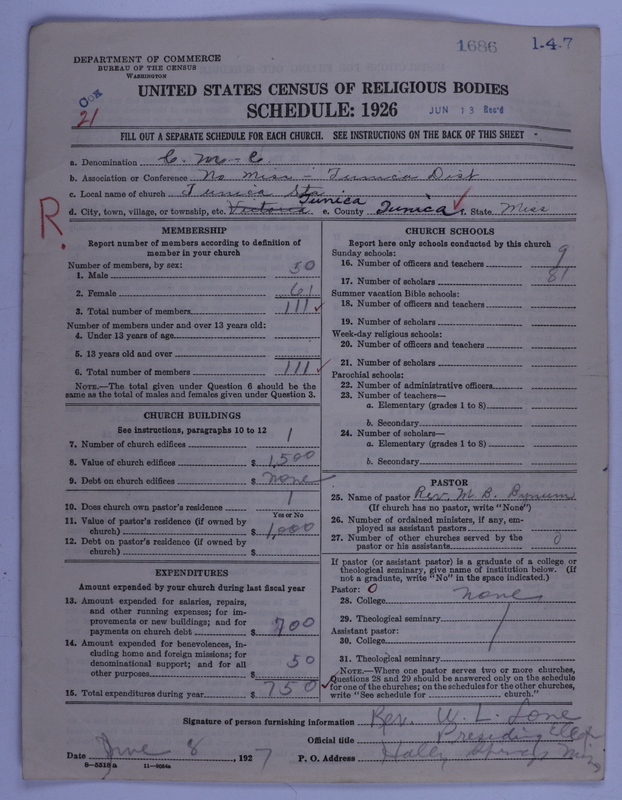 1686
1-4-7
DEPARTMENT OF COMMERCE
BUREAU OF THE CENSUS
WASHINGTON
21
UNITED STATES CENSUS OF RELIGIOUS BODIES
SCHEDULE: 1926
JUN 13 Rec'd
FILL OUT A SEPARATE SCHEDULE FOR EACH CHURCH. SEE INSTRUCTIONS ON THE BACK OF THIS SHEET
a. Denomination C. M. C.
b. Association or Conference No Miss - Tunica Dist
c. Local name of church Tunica Sta
R.
d. City, town, village, or township, etc. Tunica e. County Tunica f. State Miss
MEMBERSHIP
Report number of members according to definition of
member in your church
Number of members, by sex:
1. Male 50
2. Female 61
3. Total number of members 111
Number of members under and over 13 years old:
4. Under 13 years of age
5. 13 years old and over
6. Total number of members 111
NOTE.—The total given under Question 6 should be the
same as the total of males and females given under Question 3.
CHURCH BUILDINGS
See instructions, paragraphs 10 to 12
7. Number of church edifices 1
8. Value of church edifices $ 1,500
9. Debt on church edifices $ none
10. Does church own pastor's residence 1
Yes or No
11. Value of pastor's residence (if owned by
church) $ 1,000
12. Debt on pastor's residence (if owned by
church) $
EXPENDITURES
Amount expended by your church during last fiscal year
13. Amount expended for salaries, repairs,
and other running expenses; for im-
provements or new buildings; and for
payments on church debt $ 700
14. Amount expended for benevolences, in-
cluding home and foreign missions; for
denominational support; and for all
other purposes $ 50
15. Total expenditures during year $ 750
CHURCH SCHOOLS
Report here only schools conducted by this church
Sunday schools:
16. Number of officers and teachers 9
17. Number of scholars 81
Summer vacation Bible schools:
18. Number of officers and teachers
19. Number of scholars
Week-day religious schools:
20. Number of officers and teachers
21. Number of scholars
Parochial schools:
22. Number of administrative officers
23. Number of teachers—
a. Elementary (grades 1 to 8)
b. Secondary
24. Number of scholars—
a. Elementary (grades 1 to 8)
b. Secondary
PASTOR
25. Name of pastor Rev. M. B. Bynum
(If church has no pastor, write "None")
26. Number of ordained ministers, if any, em-
ployed as assistant pastors
27. Number of other churches served by the
pastor or his assistants 0
If pastor (or assistant pastor) is a graduate of a college or
theological seminary, give name of institution below. (If
not a graduate, write "No" in the space indicated.)
Pastor: 0
28. College none
29. Theological seminary
Assistant pastor:
30. College
31. Theological seminary
NOTE.—Where one pastor serves two or more churches,
Questions 28 and 29 should be answered only on the schedule
for one of the churches; on the schedules for the other churches,
write "See schedule for church."
Signature of person furnishing information Rev. W. L. Lone
Official title Presiding Elder
Date June 8, 1927 P. O. Address Holly Springs Miss
8-5518a 11-9064a